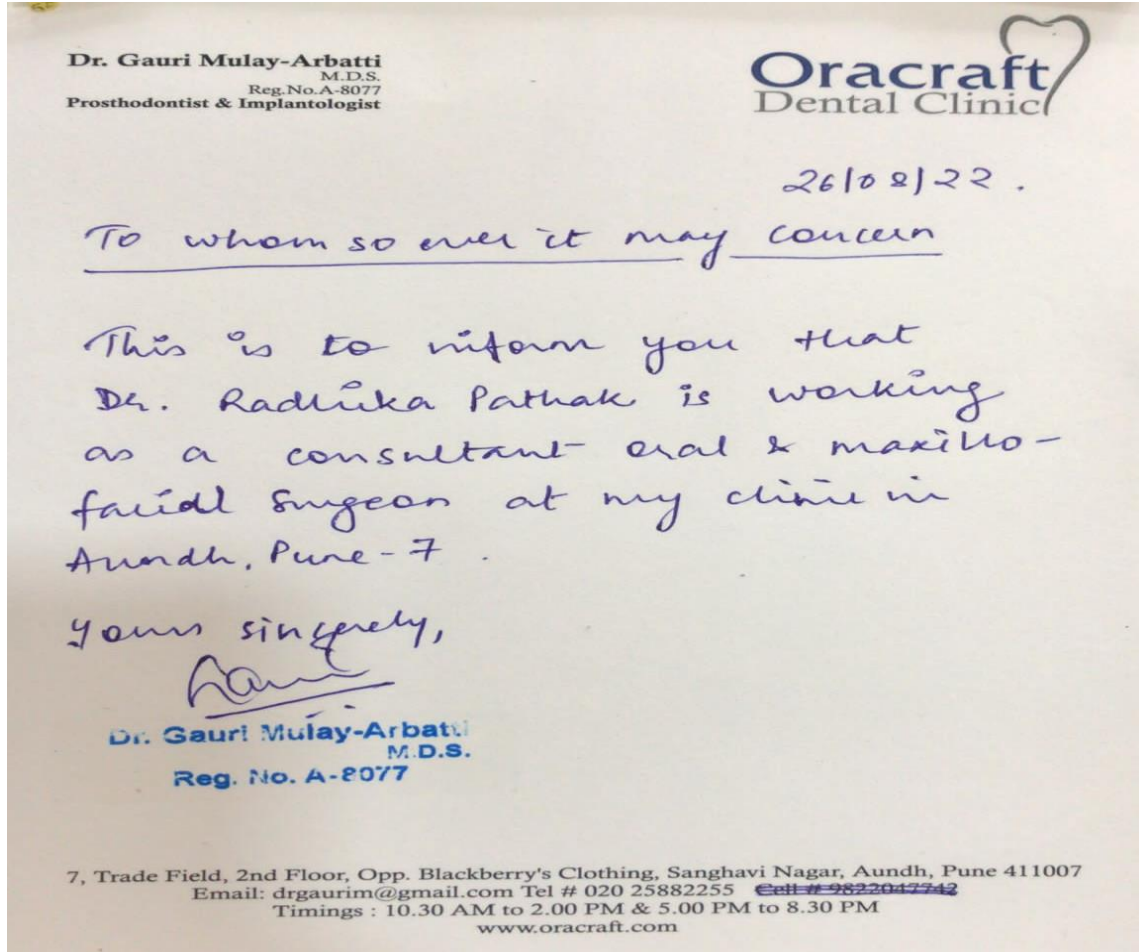 Dr. Gauri Mulay-Arbatti
M.D.S.
Reg.No.A-8077
Prosthodontist & Implantologist
Oracraft
Dental Clinic
26/08/22.
To whom so ever it may concern
This is to inform you that
Dr. Radhika Pathak is working
as a consultant oral & maxillo-
facial surgeon at my clinic in
Aundh, Pune-7.
Yours sincerely,
Dr. Gauri Mulay-Arbatti
M.D.S.
Reg. No. A-8077
7, Trade Field, 2nd Floor, Opp. Blackberry's Clothing, Sanghavi Nagar, Aundh, Pune 411007
Email: drgaurim@gmail.com Tel # 020 25882255 Cell # 9822047742
Timings : 10.30 AM to 2.00 PM & 5.00 PM to 8.30 PM
www.oracraft.com